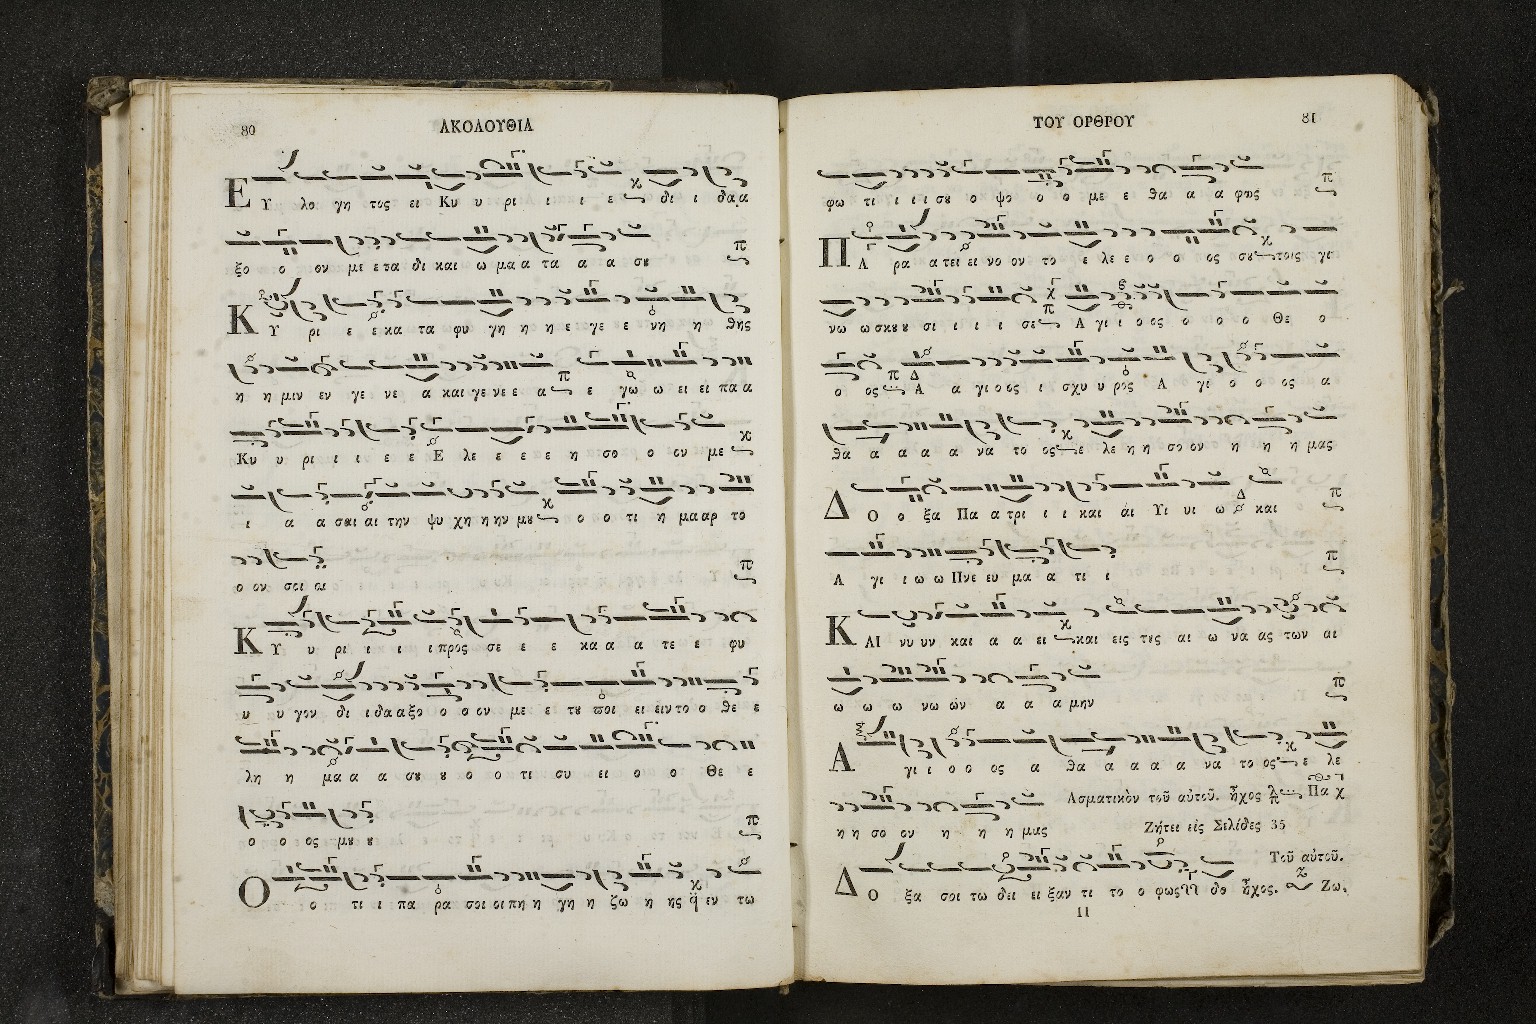 80
ΑΚΟΛΟΥΘΙΑ
Ε Υ λο γη τος ει Κυ υ ρι ι ι ε δι ι δαα
ξο ο ον με ετα δι και ω μαα τα α α σου
Κ Υ ρι ε εκα τα φυ γη η η εγε ε νη η θης
η η μιν εν γε νε α και γενεε α ε γω ω ει ει παα
Κυ υ ρι ι ι ε ε Ε λε ε ε ε η σο ο ον με
ι α α σαι αι την ψυ χη ην μου ο ο τι η μααρ το
ο ον σοι οι
Κ Υ υ ρι ι ι ι προς σε ε ε καα α τε ε φυ
υ υ γον δι ιδααξο ο ο ον με ε του ποι ει ειν το ο θε ε
λη η μαα α σου ου ο ο τι συ ει ο ο Θε ε
ο ο ος μου ου
Ο ο τι ι πα ρα σοι οι πη η γη η ζω η ης εν τω
ΤΟΥ ΟΡΘΡΟΥ
81
φω τι ι ι ι σου ο ψο ο ο με ε θα α α φως
Π Α ρα α τει ει νο ον το ε λε ε ο ο ος σου τοις γι
νω ωσκου σι ι ι ι σε Α γι ι ο ος ο ο ο Θε ο
ο ος Α α γι ο ος ι σχυ υ ρος Α γι ο ο ος α
θα α α α α να το ος ε λε η η σο ον η η η μας
Δ Ο ο ξα Πα α τρι ι ι και αι Υι υι ω και
Α γι ι ω ω Πνε ευ μα α τι ι
Κ ΑΙ νυ υν και α α ει και εις τους αι ω να ας των αι
ω ω ω νω ων α α α μην
Α γι ι ο ο ος α θα α α α α να το ος ε λε
η η σο ον η η η μας Ασματικὸν τοῦ αὐτοῦ. ἦχος Πα χ
Ζήτει εἰς Σελίδες 35
Τοῦ αὐτοῦ.
Δ Ο ξα σοι τω δει ει ξαν τι το ο φως ἦχος. Ζω.
11